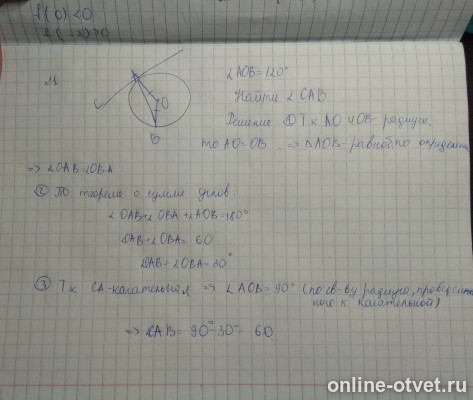 f(0)<0
∠AOB=120°
Найти ∠CAB.
Решение ① Т.к AO и OB- радиусы,
то AO=OB. => ΔAOB- равноб по определен
=> ∠OAB=∠OBA
② По теореме о сумме углов:
∠OAB+∠OBA+∠AOB=180°
∠OAB+∠OBA= 60
∠OAB= ∠OBA=30°
③ Т.к CA-касательная => ∠AOB=90° (по св-ву радиуса, проведен-
ного к касательной)
=> ∠CAB= 90°-30°= 60
C
O
B
online-otvet.ru